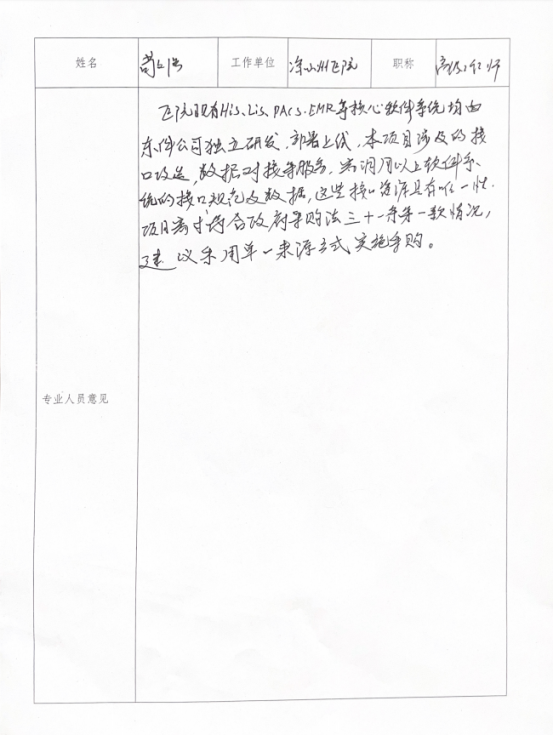 姓名 工作单位 凉山州医院 职称 高级工程师
医院现有His、Lis、PACS、EMR等核心软件系统均由
东件公司独立研发、部署上线,本项目涉及的接
口改造,数据对接等服务,需调用以上软件系
统的接口规范及数据,这些接口资源具有唯一性.
项目需求符合政府采购法三十一条第一款情况,
建议采用单一来源方式实施采购。
专业人员意见